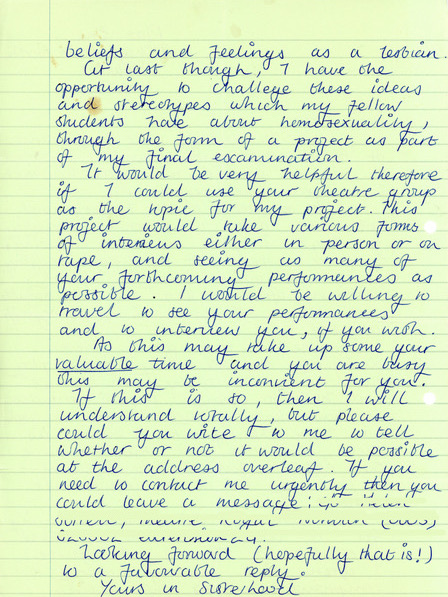 beliefs and feelings as a lesbian.
At last though, I have the
opportunity to challege these ideas
and stereotypes which my fellow
students have about homosexuality,
through the form of a project as part
of my final excamination.
It would be very helpful therefore
if I could use your theatre group
as the topic for my project. This
project would take various forms
of interveius either in person or on
tape, and seeing as many of
your forthcoming performances as
possible. I would be willing to
travel to see your performances
and to interview you, if you wish.
As this may take up some your
valuable time and you are busy
this may be inconvient for you.
If this is so, then I will
understand totally, but please
could you wite to me to tell
whether or not it would be possible
at the address overleaf. If you
need to contact me urgently then you
could leave a message:
Looking forward (hopefully that is!)
to a favourable reply.
Yours in Sisterhood